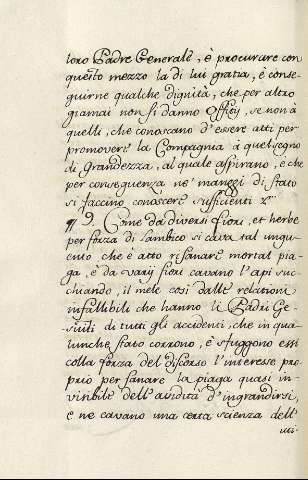 loro Padre Generale, è procurare con
questo mezzo la di lui gratia, è conse=
guirne qualche dignità, che per altro
giamai non si danno Offitij, se non à
quelli, che conoscano d'essere atti per
promovere la Compagnia à quel segno
di Grandezza, al quale aspirano, e che
per conseguenza ne' maneggi di stato
si faccino conoscere sufficienti
¶ 9. Come da diversi fiori, et herbe
per forza di lambico si cava tal ungu=
ento che è atto risanare mortal pia=
ga, è da varij fiori cavano l'api suc=
chiando, il mele così dalle relationi
infallibili che hanno li Padri Ge=
suiti di tutti gli accidenti, che in qua=
lunche stato corrono, è sfuggono essi
colla forza del discorso l'interesse pro=
prio per sanare la piaga quasi in=
vincibile dell'avidità d'ingrandirsi,
e ne cavano una certa scienza dell'